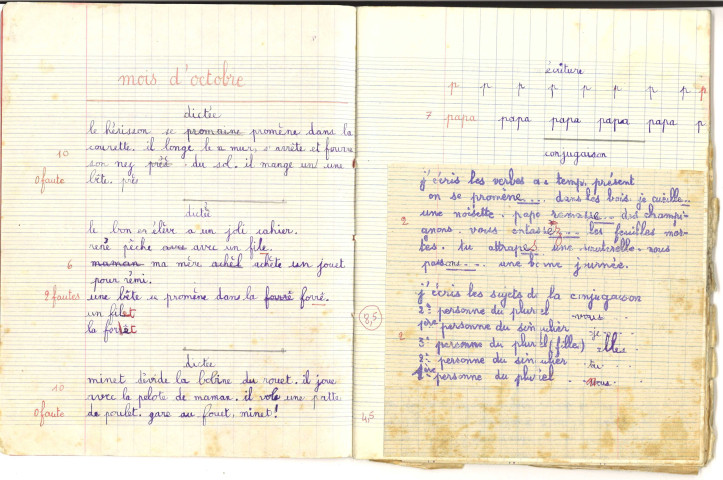 mois d'octobre
dictée
le hérisson se promaine promène dans la
courette. il longe le mur, s'arrête et fourre
10
son nez près du sol. il mange un une
0 faute
bête. près
dictée
le bon élève a un joli cahier.
rené pêche avec avec un file.
6
maman ma mère achèl achète un jouet
pour rémi.
2 fautes
une bête se promène dans la forré forré.
un filet
la forêt
dictée
10
minet dévide la bobine du rouet. il joue
avec la pelote de maman. il vole une patte
0 faute
de poulet. gare au fouet, minet!
écriture
p p p p p p p p
7
papa papa papa papa papa p
conjugaison
j'écris les verbes au temps présent
on se promène... dans les bois. je cueille...
2
une noisette. papa ramasse... des champi-
gnons. vous entassez... les feuilles mor-
tes. tu attrapes une sauterelle. nous
passons... une bonne journée.
j'écris les sujets de la conjugaison
8,5
2e personne du pluriel ..vous..
1ère personne du singulier ..je..
2
3e personne du pluriel (filles) elles
2e personne du singulier ..tu..
1ère personne du pluriel ..nous..
4,5